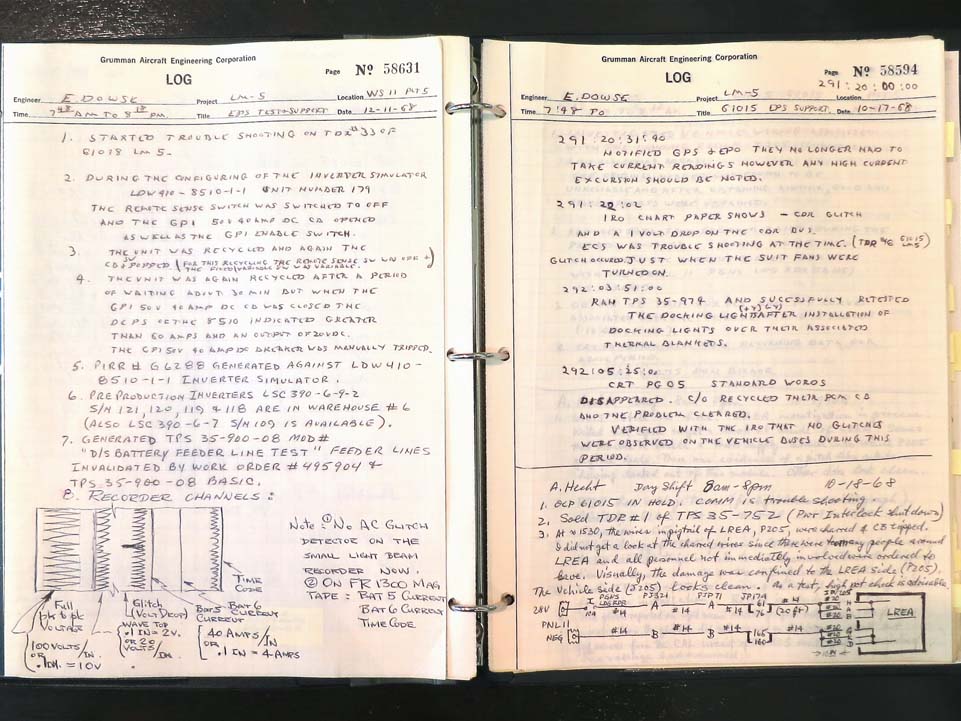 Grumman Aircraft Engineering Corporation
LOG
Page Nº 58631
Engineer E. DOWSE Project LM-5 Location WS 11 PLT 5
Time 7 48 AM TO 8 18 PM. Title EPS TEST SUPPORT Date 12-11-68
1. STARTED TROUBLE SHOOTING ON TDR # 33 OF
61018 LM 5.
2. DURING THE CONFIGURING OF THE INVERTER SIMULATOR
LDW 410-8510-1-1 UNIT NUMBER 179
THE REMOTE SENSE SWITCH WAS SWITCHED TO OFF
AND THE GPI 50V 40 AMP DC CB OPENED
AS WELL AS THE GPI ENABLE SWITCH.
3. THE UNIT WAS RECYCLED AND AGAIN THE
CB & SW POPPED (FOR THIS RECYCLING THE REMOTE SENSE SW WAS OFF &)
THE FIXED/VARIABLE SW WAS VARIABLE.
4. THE UNIT WAS AGAIN RECYCLED AFTER A PERIOD
OF WAITING ABOUT 30 MIN BUT WHEN THE
GPI 50V 40 AMP DC CB WAS CLOSED THE
DCPS OF THE 8510 INDICATED GREATER
THAN 60 AMPS AND AN OUTPUT OF 20VDC.
THE GPI 50V 40 AMP DC BREAKER WAS MANUALLY TRIPPED.
5. PIRR # G6288 GENERATED AGAINST LDW 410-
8510-1-1 INVERTER SIMULATOR.
6. PREPRODUCTION INVERTERS LSC 390-6-9-2
S/N 121, 120, 119 & 118 ARE IN WAREHOUSE # 6
(ALSO LSC 390-6-7 S/N 109 IS AVAILABLE).
7. GENERATED TPS 35-900-08 MOD #
"D/S BATTERY FEEDER LINE TEST" FEEDER LINES
INVALIDATED BY WORK ORDER # 495904 &
TPS 35-900-08 BASIC.
8. RECORDER CHANNELS:
Note: ① No AC GLITCH
DETECTOR ON THE
SMALL LIGHT BEAM
RECORDER NOW.
② ON FR 1300 MAG
TAPE: BAT 5 CURRENT
BAT 6 CURRENT
TIME CODE
TIME
CODE
Full
pk to pk
VOLTAGE
100 VOLTS/IN
OR
.1IN. = 10V
Glitch
(VOLT DROP)
WAVE TOP
.1 IN = 2V.
OR 20
VOLTS/IN
BAT 5
CURRENT
BAT 6
CURRENT
40 AMPS/IN
OR
.1 IN = 4 AMPS
Grumman Aircraft Engineering Corporation
LOG
Page Nº 58594
291:20:00:00
Engineer E. DOWSE Project LM-5 Location
Time 7:48 TO Title 61015 EPS SUPPORT Date 10-17-68
291:20:31:40
NOTIFIED GPS & EPO THEY NO LONGER HAD TO
TAKE CURRENT READINGS HOWEVER ANY HIGH CURRENT
EXCURSION SHOULD BE NOTED.
291:20:02
IRO CHART PAPER SHOWS - CDR GLITCH
AND A 1 VOLT DROP ON THE CDR BUS.
ECS WAS TROUBLE SHOOTING AT THE TIME. (TDR 46 61015 LM5)
GLITCH OCCURED JUST WHEN THE SUIT FANS WERE
TURNED ON.
292:03:51:00
RAN TPS 35-974 AND SUCESSFULLY RETESTED
THE DOCKING LIGHTS AFTER INSTALLATION OF
DOCKING LIGHTS OVER THEIR ASSOCIATED
THERMAL BLANKETS.
292:05:25:00
CRT PG 05 STANDARD WORDS
DISAPPEARED. C/O RECYCLED THEIR PCM CB
AND THE PROBLEM CLEARED.
VERIFIED WITH THE IRO THAT NO GLITCHES
WERE OBSERVED ON THE VEHICLE BUSES DURING THIS
PERIOD.
A. Hecht Day Shift 8am-8pm 10-18-68
1. OCP 61015 IN HOLD. COMM is trouble shooting
2. Sold TDR #1 of TPS 35-752 (Pwr Interlock shut down)
3. At ≈1530, the wires in pigtail of LREA, P205, were charred & CB tripped.
I did not get a look at the charred wires since there were too many people around
LREA and all personnel not immediately involved were ordered to
leave. Visually, the damage was confined to the LREA side (P205).
The Vehicle Side (J205) looks clean. As a test, high pot check is advisable
28V
PNL 11
NEG
#14 A #14 A #14 61 76 #14 (20 ft)
#14 B #14 B #14 #14
LREA